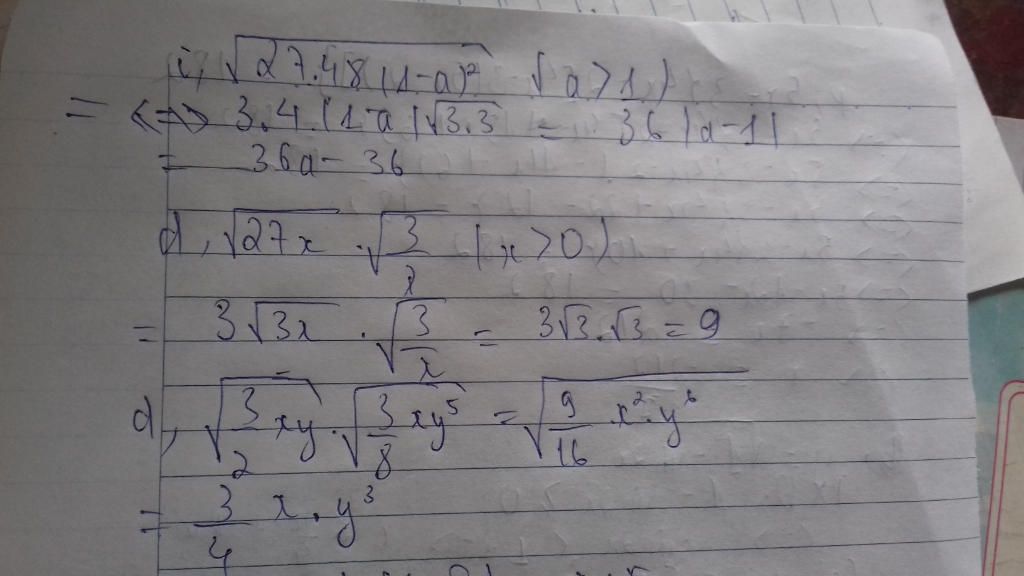 i, √27.48(1-a)² (a>1)
= <=> 3.4.|1-a|√3.3 = 36|a-1|
= 36a - 36
d, √27x . √3/x (x>0)
= 3√3x . √3/x = 3√3.√3 = 9
d, √3/2 xy . √3/8 xy⁵ = √9/16 . x².y⁶
= 3/4 x.y³